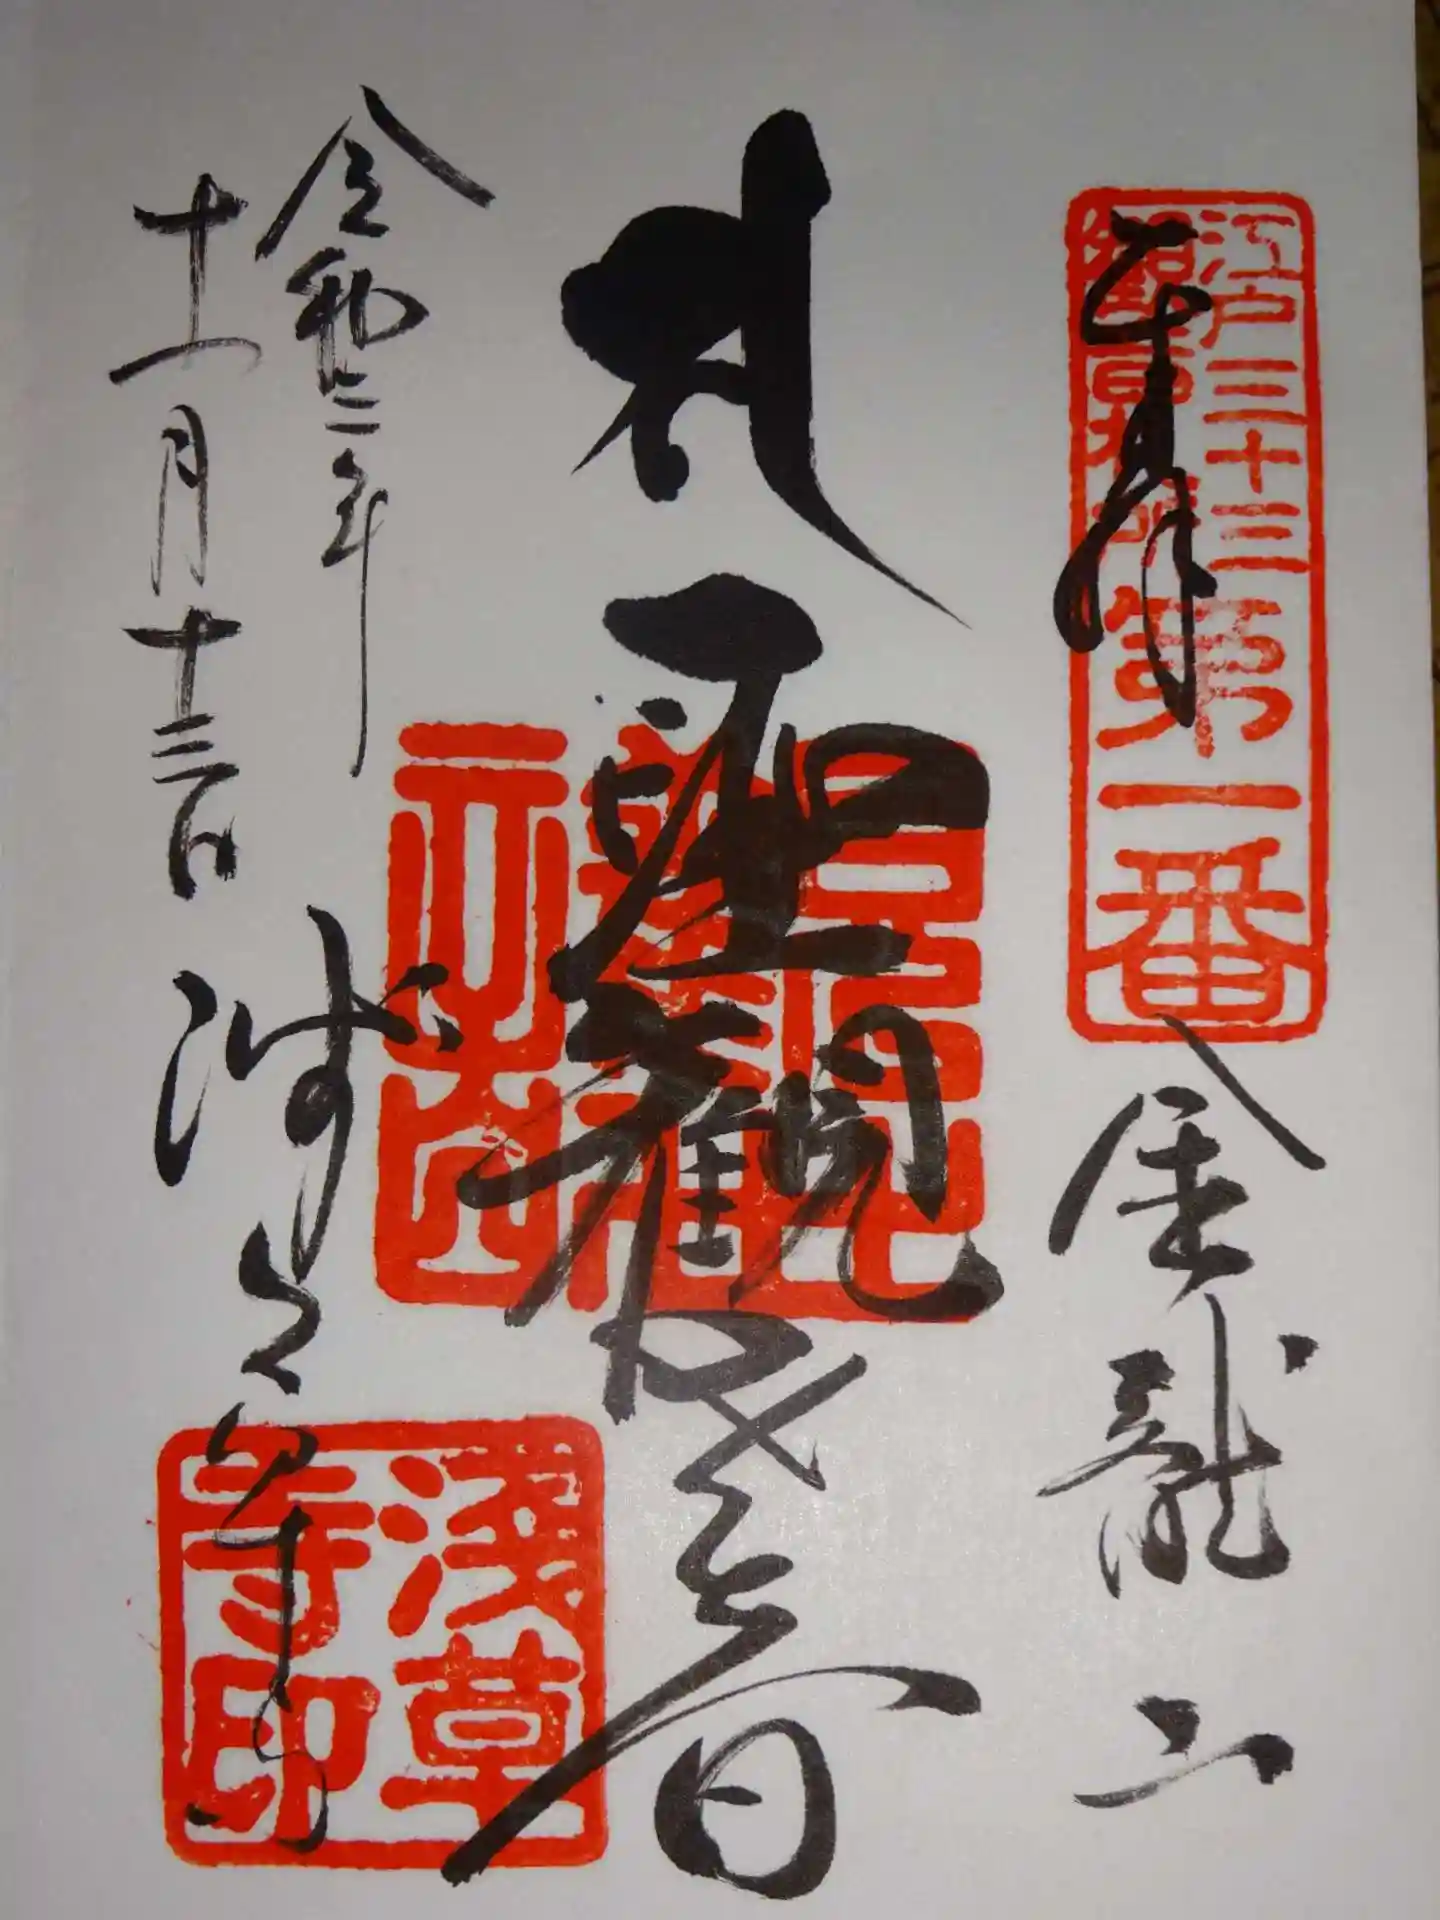 江戸三十三
観音札所
第一番
奉拝
金龍山
聖観世音
令和二年
十一月十三日
浅草寺
浅草寺印